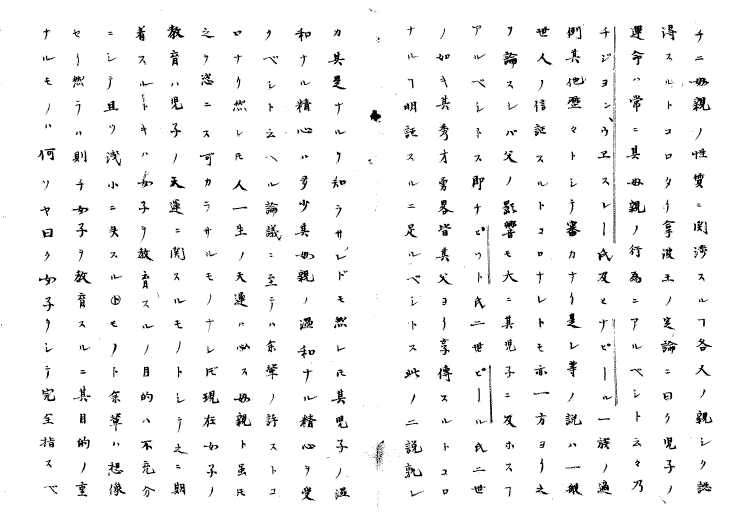 チニ母親ノ性質ニ関渉スルヿ各人ノ親シク認
得スルトコロタリ拿波王ノ定論ニ曰ク児子ノ
運命ハ常ニ其母親ノ行為ニアルベシト云々乃
チジヨンウヱスレー氏及ヒナピール一族ノ適
例其他歴々トシテ審カナリ是レ等ノ説ハ一般
世人ノ信証スルトコロナレトモ亦一方ヨリ之
ヲ論スレバ父ノ影響モ大ニ其児子ニ及ホスヿ
アルベシトス即チピツト氏二世ピール氏二世
ノ如キ其秀才勇畧皆其父ヨリ享傳スルトコロ
ナルヿ明証スルニ足ルベシトス此ノ二説孰レ
カ其是ナルヲ知ラサレドモ然レ𪜈其児子ノ温
和ナル精心ハ多少其母親ノ温和ナル精心ヲ受
クベシト云ヘル論議ニ至テハ余輩ノ許ストコ
ロナリ然レ𪜈人一生ノ天運ハ必ス母親ト雖𪜈
之ヲ恣ニス可カラサルモノナレ𪜈現在女子ノ
教育ハ児子ノ天運ニ関スルモノトシテ之ニ期
着スルトキハ女子ヲ教育スルノ目的ハ不充分
ニシテ且ツ浅小ニ失スルモノト余輩ハ想像
セリ然ラハ則チ女子ヲ教育スルニ其目的ノ重
ナルモノハ何ソヤ曰ク女子ヲシテ完全指スベ